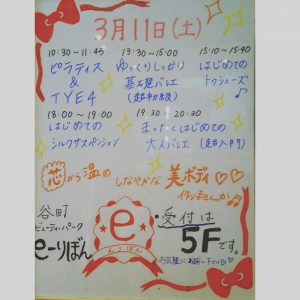 3月11日(土)
10:30~11:45 13:30~15:00 15:10~15:40
ピラティス ゆっくりしっかり はじめての
& 基礎バレエ トウシューズ♪
TYE4 (超初級)
18:00~19:00 19:30~20:30
はじめての まったくはじめての
シルクサスペンション 大人バレエ(超入門)
芯から温め
しなやかな美ボディ♡
作りませんか♪
谷町
ビューティーパーク
e-りぼん
e
えりぼん
・受付は
5Fです。
お気軽にお越し下さい♡♡